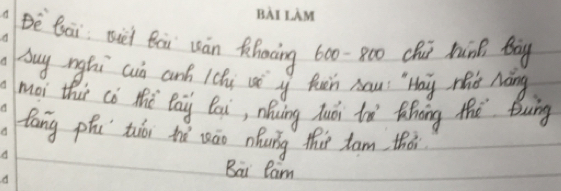 BÀI LÀM
Đề bài: viết bài văn khoảng 600-800 chữ trình bày
suy nghĩ của anh /chị về ý kiến sau: "Hãy nhớ rằng
mọi thứ có thể lấy lại, nhưng tuổi trẻ không thể". Đừng
lãng phí tuổi trẻ vào những thứ tạm thời.
Bài làm